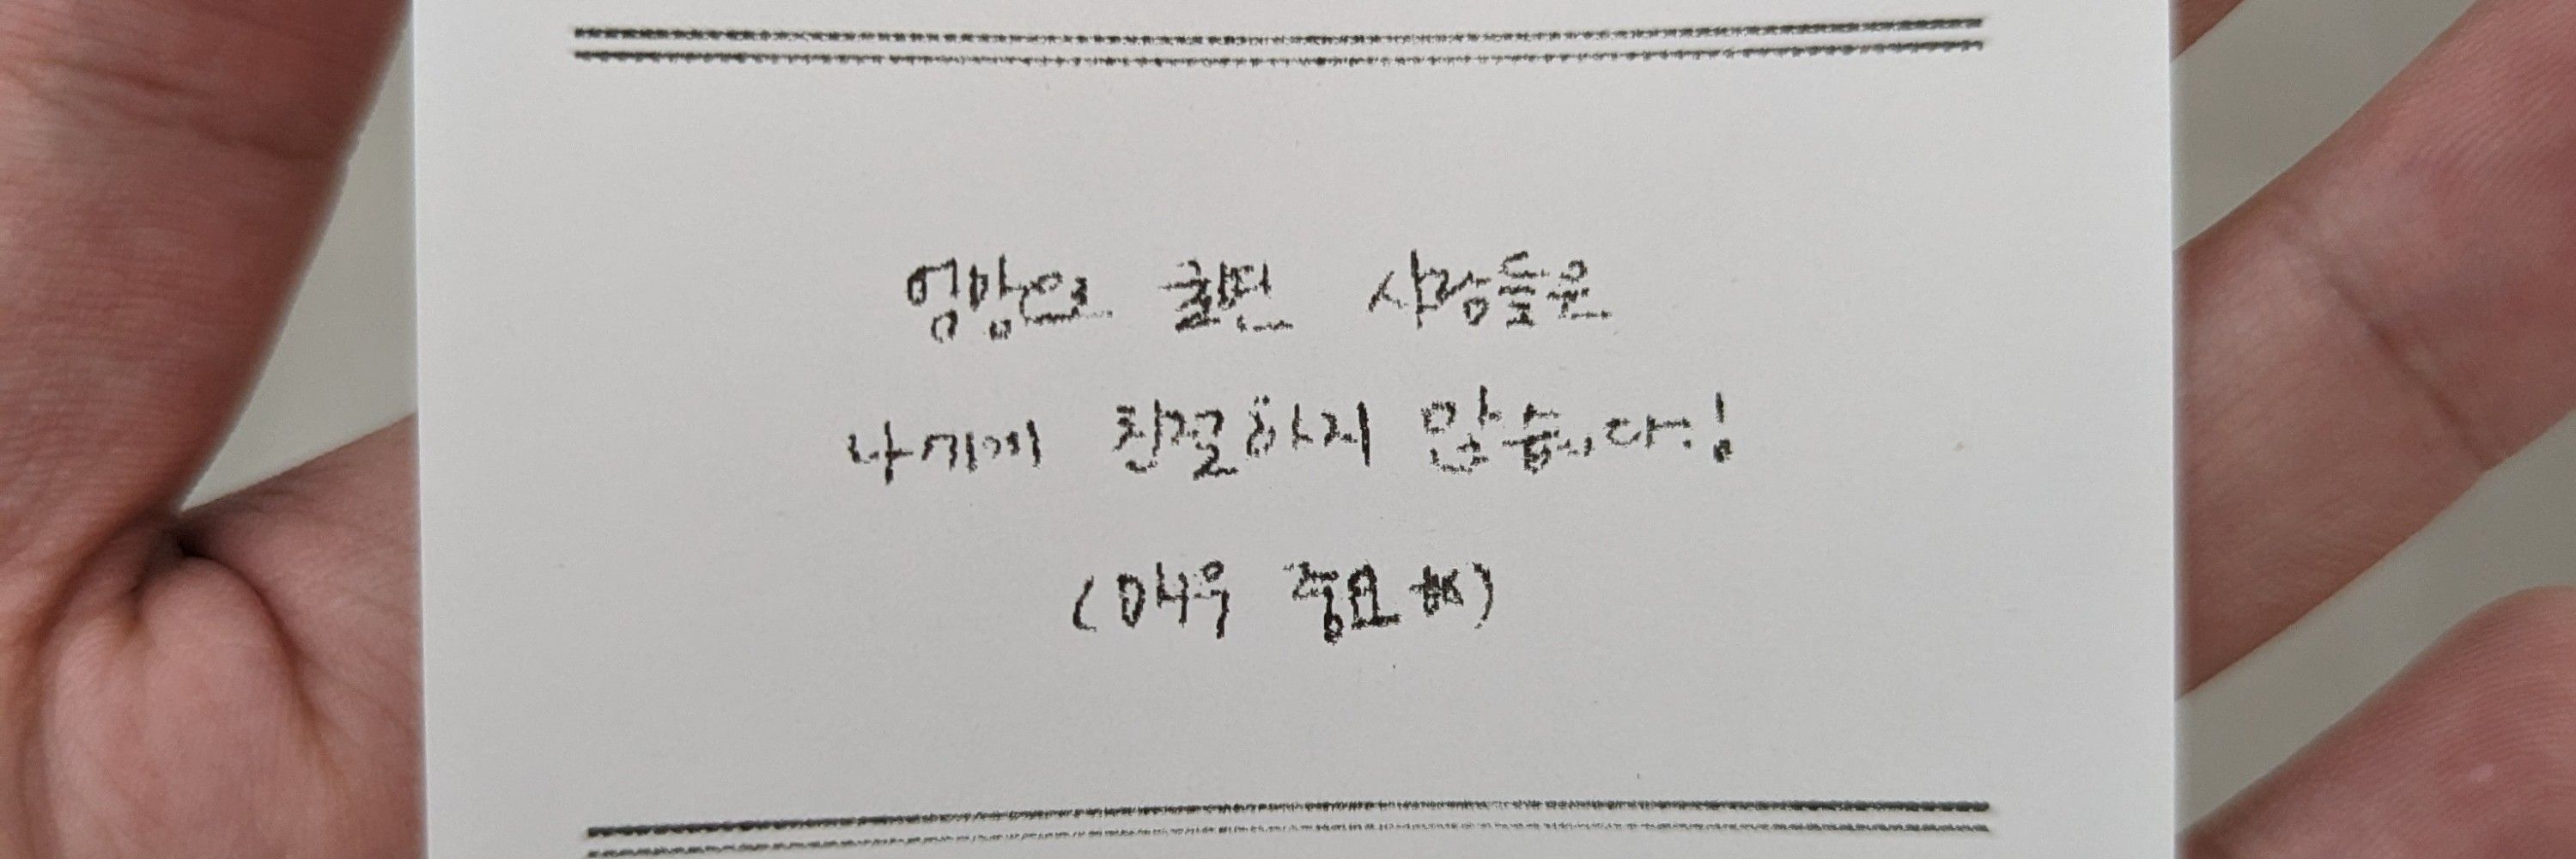 엉망으로 굴면 사람들은
나에게 친절하지 않습니다!
(매우 중요※)